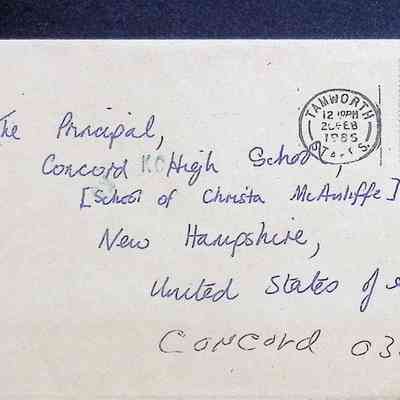 TAMWORTH
12 15PM
20 FEB
1986
STAFFS.
The Principal,
Concord High School,
[School of Christa McAuliffe]
New Hampshire,
United States of
Concord 03